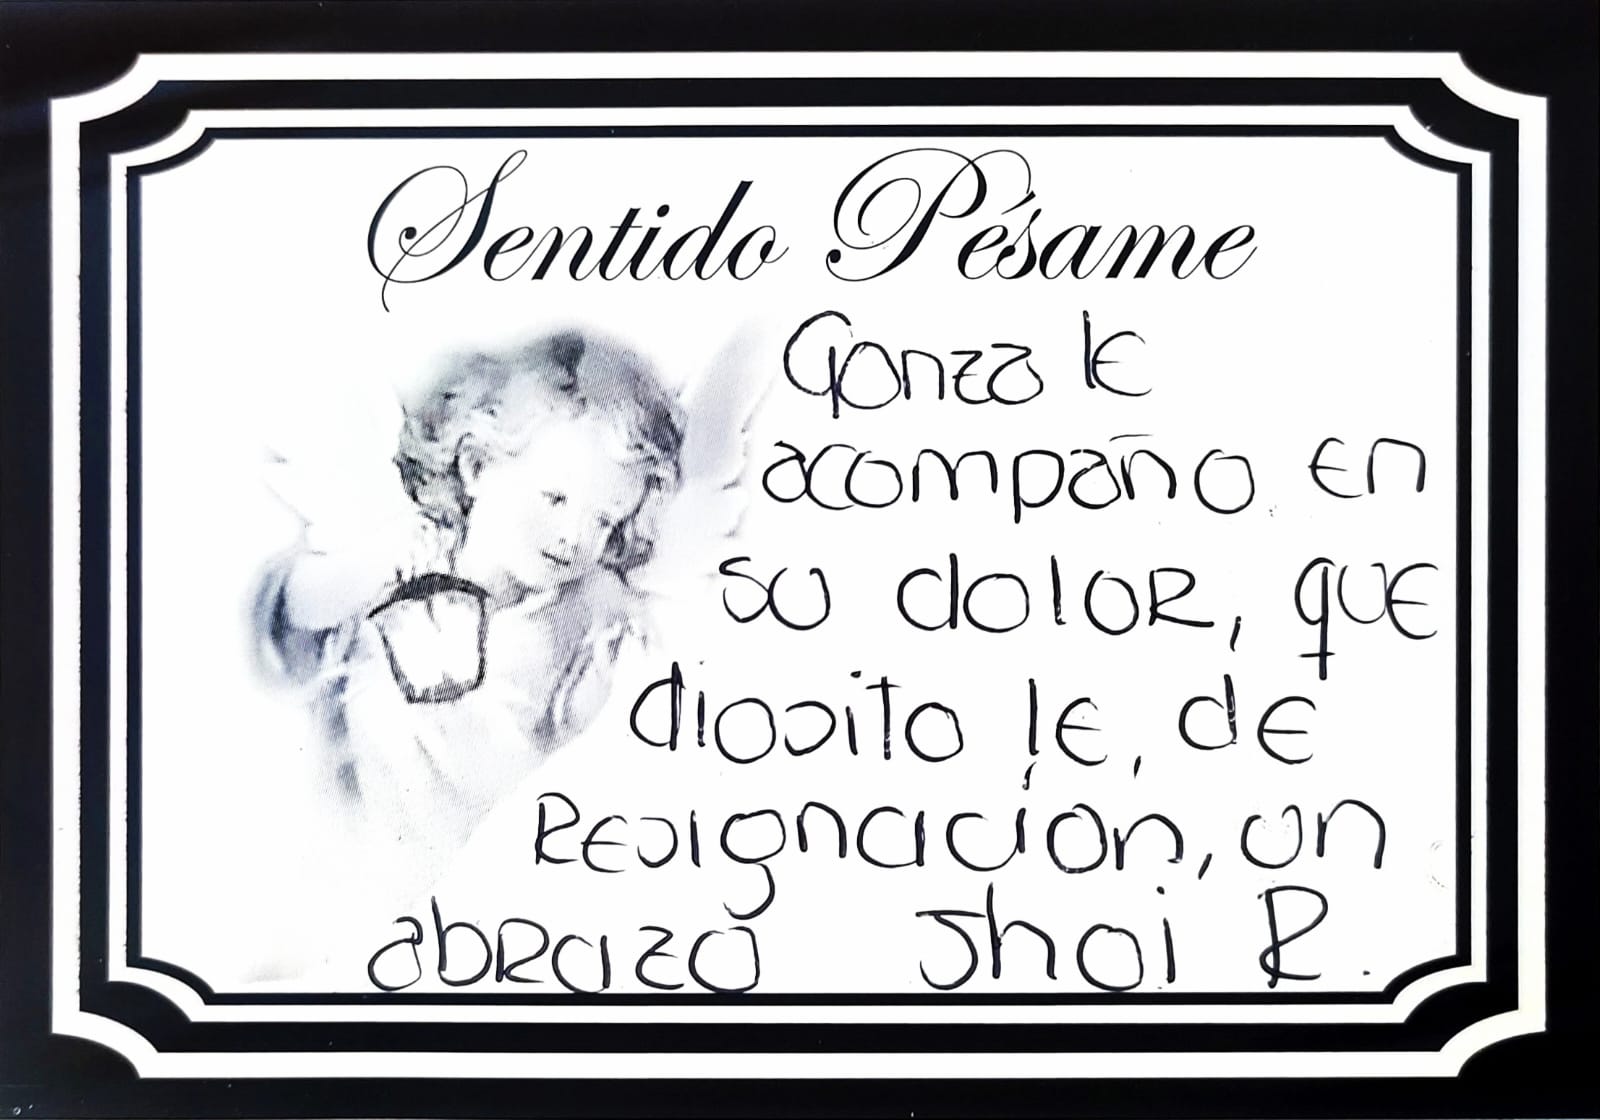 Sentido Pésame
Gonza le
acompaño en
su dolor, que
diosito le, de
Resignación, un
abrazo Jhoi R.